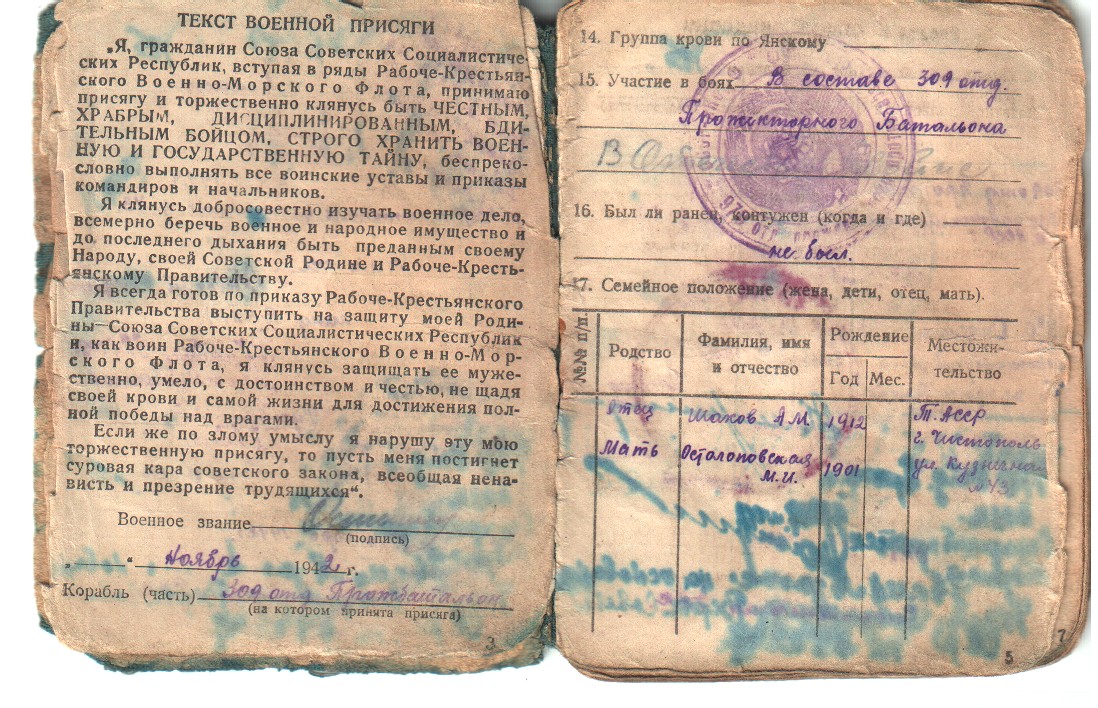 ТЕКСТ ВОЕННОЙ ПРИСЯГИ
„Я, гражданин Союза Советских Социалистиче-
ских Республик, вступая в ряды Рабоче-Крестьян-
ского Военно-Морского Флота, принимаю
присягу и торжественно клянусь быть ЧЕСТНЫМ,
ХРАБРЫМ, ДИСЦИПЛИНИРОВАННЫМ, БДИ-
ТЕЛЬНЫМ БОЙЦОМ, СТРОГО ХРАНИТЬ ВОЕН-
НУЮ И ГОСУДАРСТВЕННУЮ ТАЙНУ, беспреко-
словно выполнять все воинские уставы и приказы
командиров и начальников.
Я клянусь добросовестно изучать военное дело,
всемерно беречь военное и народное имущество и
до последнего дыхания быть преданным своему
Народу, своей Советской Родине и Рабоче-Кресть-
янскому Правительству.
Я всегда готов по приказу Рабоче-Крестьянского
Правительства выступить на защиту моей Роди-
ны—Союза Советских Социалистических Республик
и, как воин Рабоче-Крестьянского Военно-Мор-
ского Флота, я клянусь защищать ее муже-
ственно, умело, с достоинством и честью, не щадя
своей крови и самой жизни для достижения пол-
ной победы над врагами.
Если же по злому умыслу я нарушу эту мою
торжественную присягу, то пусть меня постигнет
суровая кара советского закона, всеобщая нена-
висть и презрение трудящихся“.
Военное звание
(подпись)
„ “ Ноябрь 1942 г.
Корабль (часть) 309 отд Прожбатальон
(на котором принята присяга)
3
14. Группа крови по Янскому
15. Участие в боях В составе 309 отд.
Прожекторного Батальона
В
16. Был ли ранен, контужен (когда и где)
не был.
17. Семейное положение (жена, дети, отец, мать).
№№ п/п. Родство Фамилия, имя и отчество Рождение Год Мес. Местожи-
тельство
Отец Шахов А.М. 1912 Т. АССР
г. Чистополь
Мать Осталоповская 1901 ул. Кузнечная
М.И. № 43
5
7